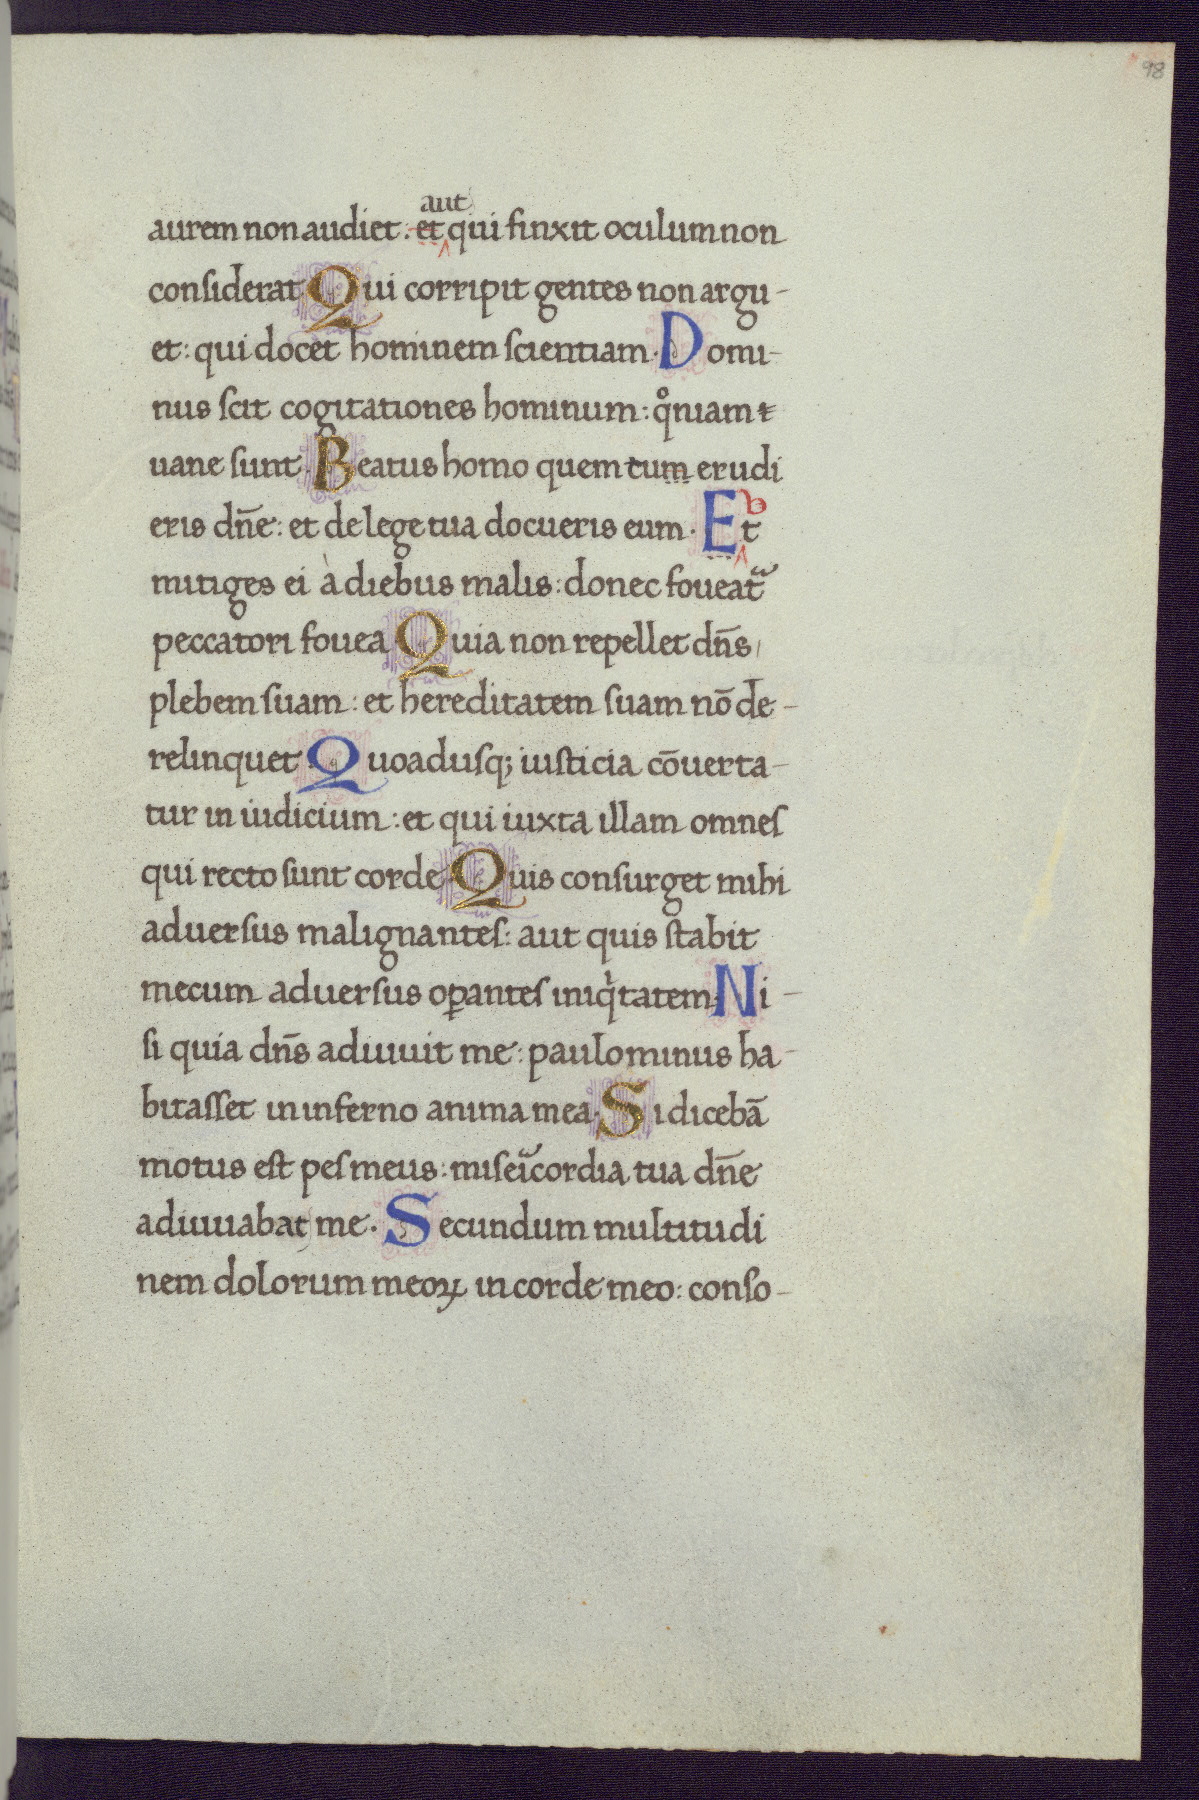 98
aut
aurem non audiet. et qui finxit oculum non
considerat. Qui corripit gentes non argu-
et: qui docet hominem scientiam. Domi-
nus scit cogitationes hominum: qͦniam
uane sunt. Beatus homo quem tum erudi
eris dn̄e: et de lege tua docueris eum. Et
mitiges ei a diebus malis: donec foueat᷑
peccatori fouea. Quia non repellet dn̄s
plebem suam: et hereditatem suam nō de-
relinquet. Quoadusq; iusticia cōuerta-
tur in iudicium: et qui iuxta illam omnes
qui recto sunt corde. Quis consurget mihi
aduersus malignantes: aut quis stabit
mecum aduersus oꝑantes iniqͥtatem. Ni-
si quia dn̄s adiuuit me: paulominus ha-
bitasset in inferno anima mea. Si dicebā
motus est pes meus: misei᷑cordia tua dn̄e
adiuuabat me. Secundum multitudi
nem dolorum meoꝝ in corde meo: conso-